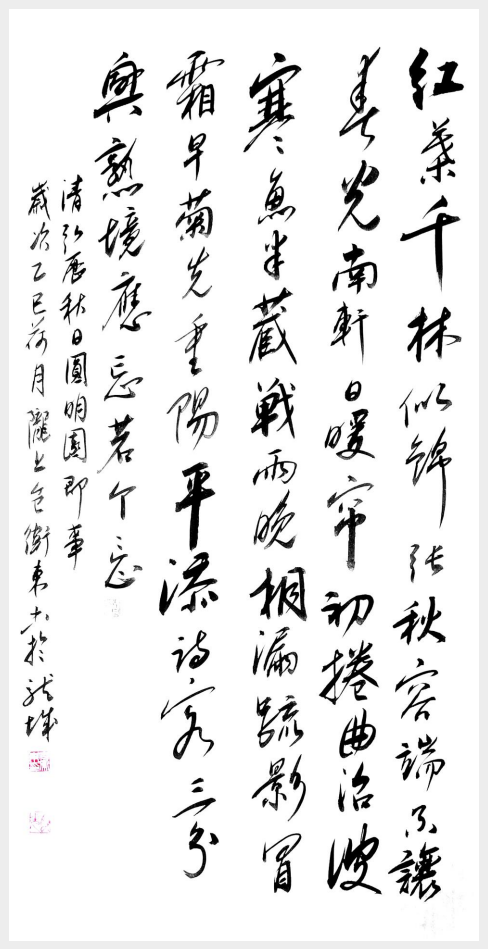 紅葉千林似錦張秋容端不讓
春光南軒日暖帘初捲曲沼波
寒魚半藏戰雨晚桐漏疏影冒
霜早菊先重陽平添詩客三分
興熟境應忘若个忘
清弘歷秋日圓明園即事
歲次乙巳荷月隴上包衛東書於龍城